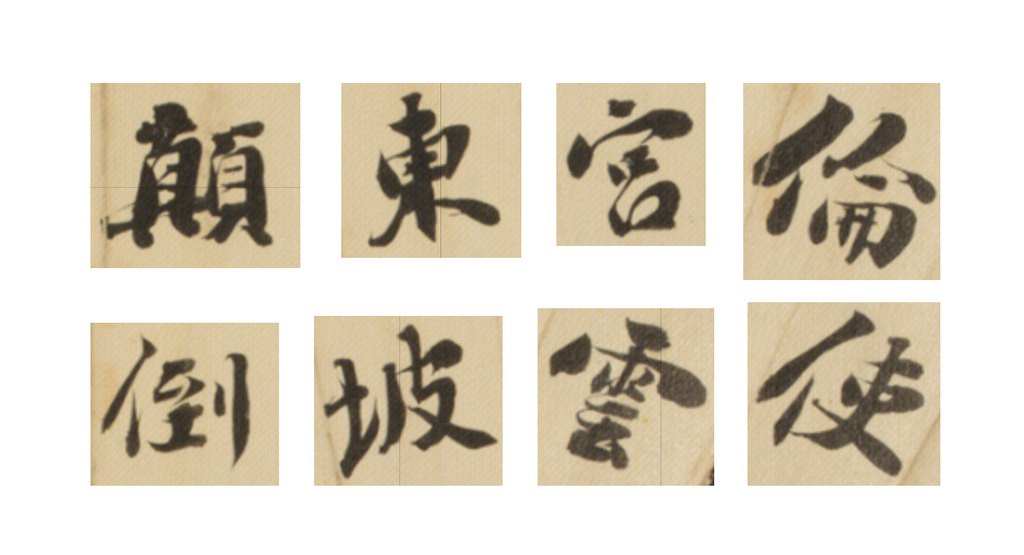 顛東宮倫
倒坡雲使